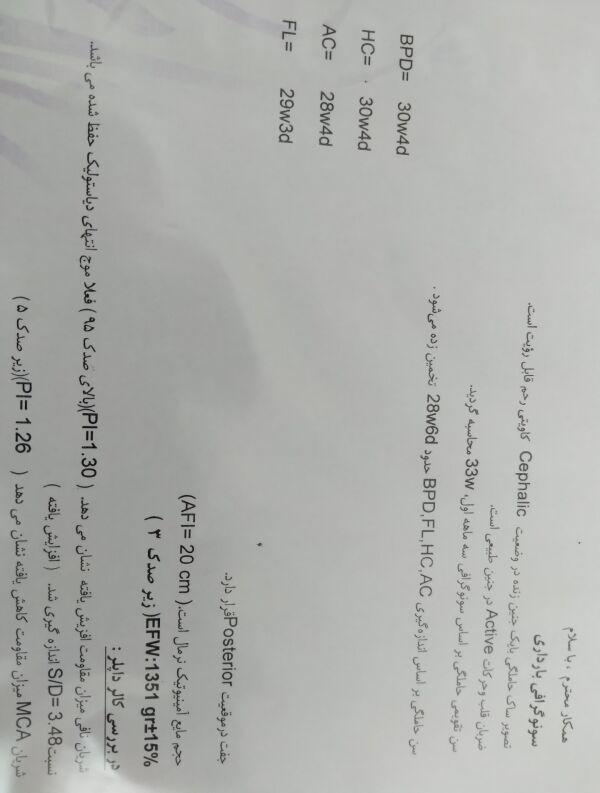 همکار محترم ، با سلام
سونوگرافی بارداری
تصویر ساک حاملگی بایک جنین زنده در وضعیت Cephalic کاویتی رحم قابل رؤیت است.
ضربان قلب وحرکات Active در جنین طبیعی است.
سن تقویمی حاملگی بر اساس سونوگرافی سه ماهه اول، 33w محاسبه گردید.
سن حاملگی بر اساس اندازه گیری BPD,FL,HC,AC حدود 28w6d تخمین زده می‌شود .
BPD= 30w4d
HC= 30w4d
AC= 28w4d
FL= 29w3d
جفت درموقعیت Posterior قرار دارد.
حجم مایع آمنیوتیک نرمال است.( AFI= 20 cm)
EFW:1351 gr±15% ( زیر صدک ۳ )
در بررسی کالر داپلر :
شریان نافی میزان مقاومت افزیش یافته نشان می دهد. ( PI=1.30)(بالای صدک ۹۵ ) فعلا موج انتهای دیاستولیک حفظ شده می باشد.
نسبت S/D= 3.48 اندازه گیری شد. ( افزایش یافته )
شریان MCA میزان مقاومت کاهش یافته نشان می دهد ( PI= 1.26)(زیر صدک ۵ )